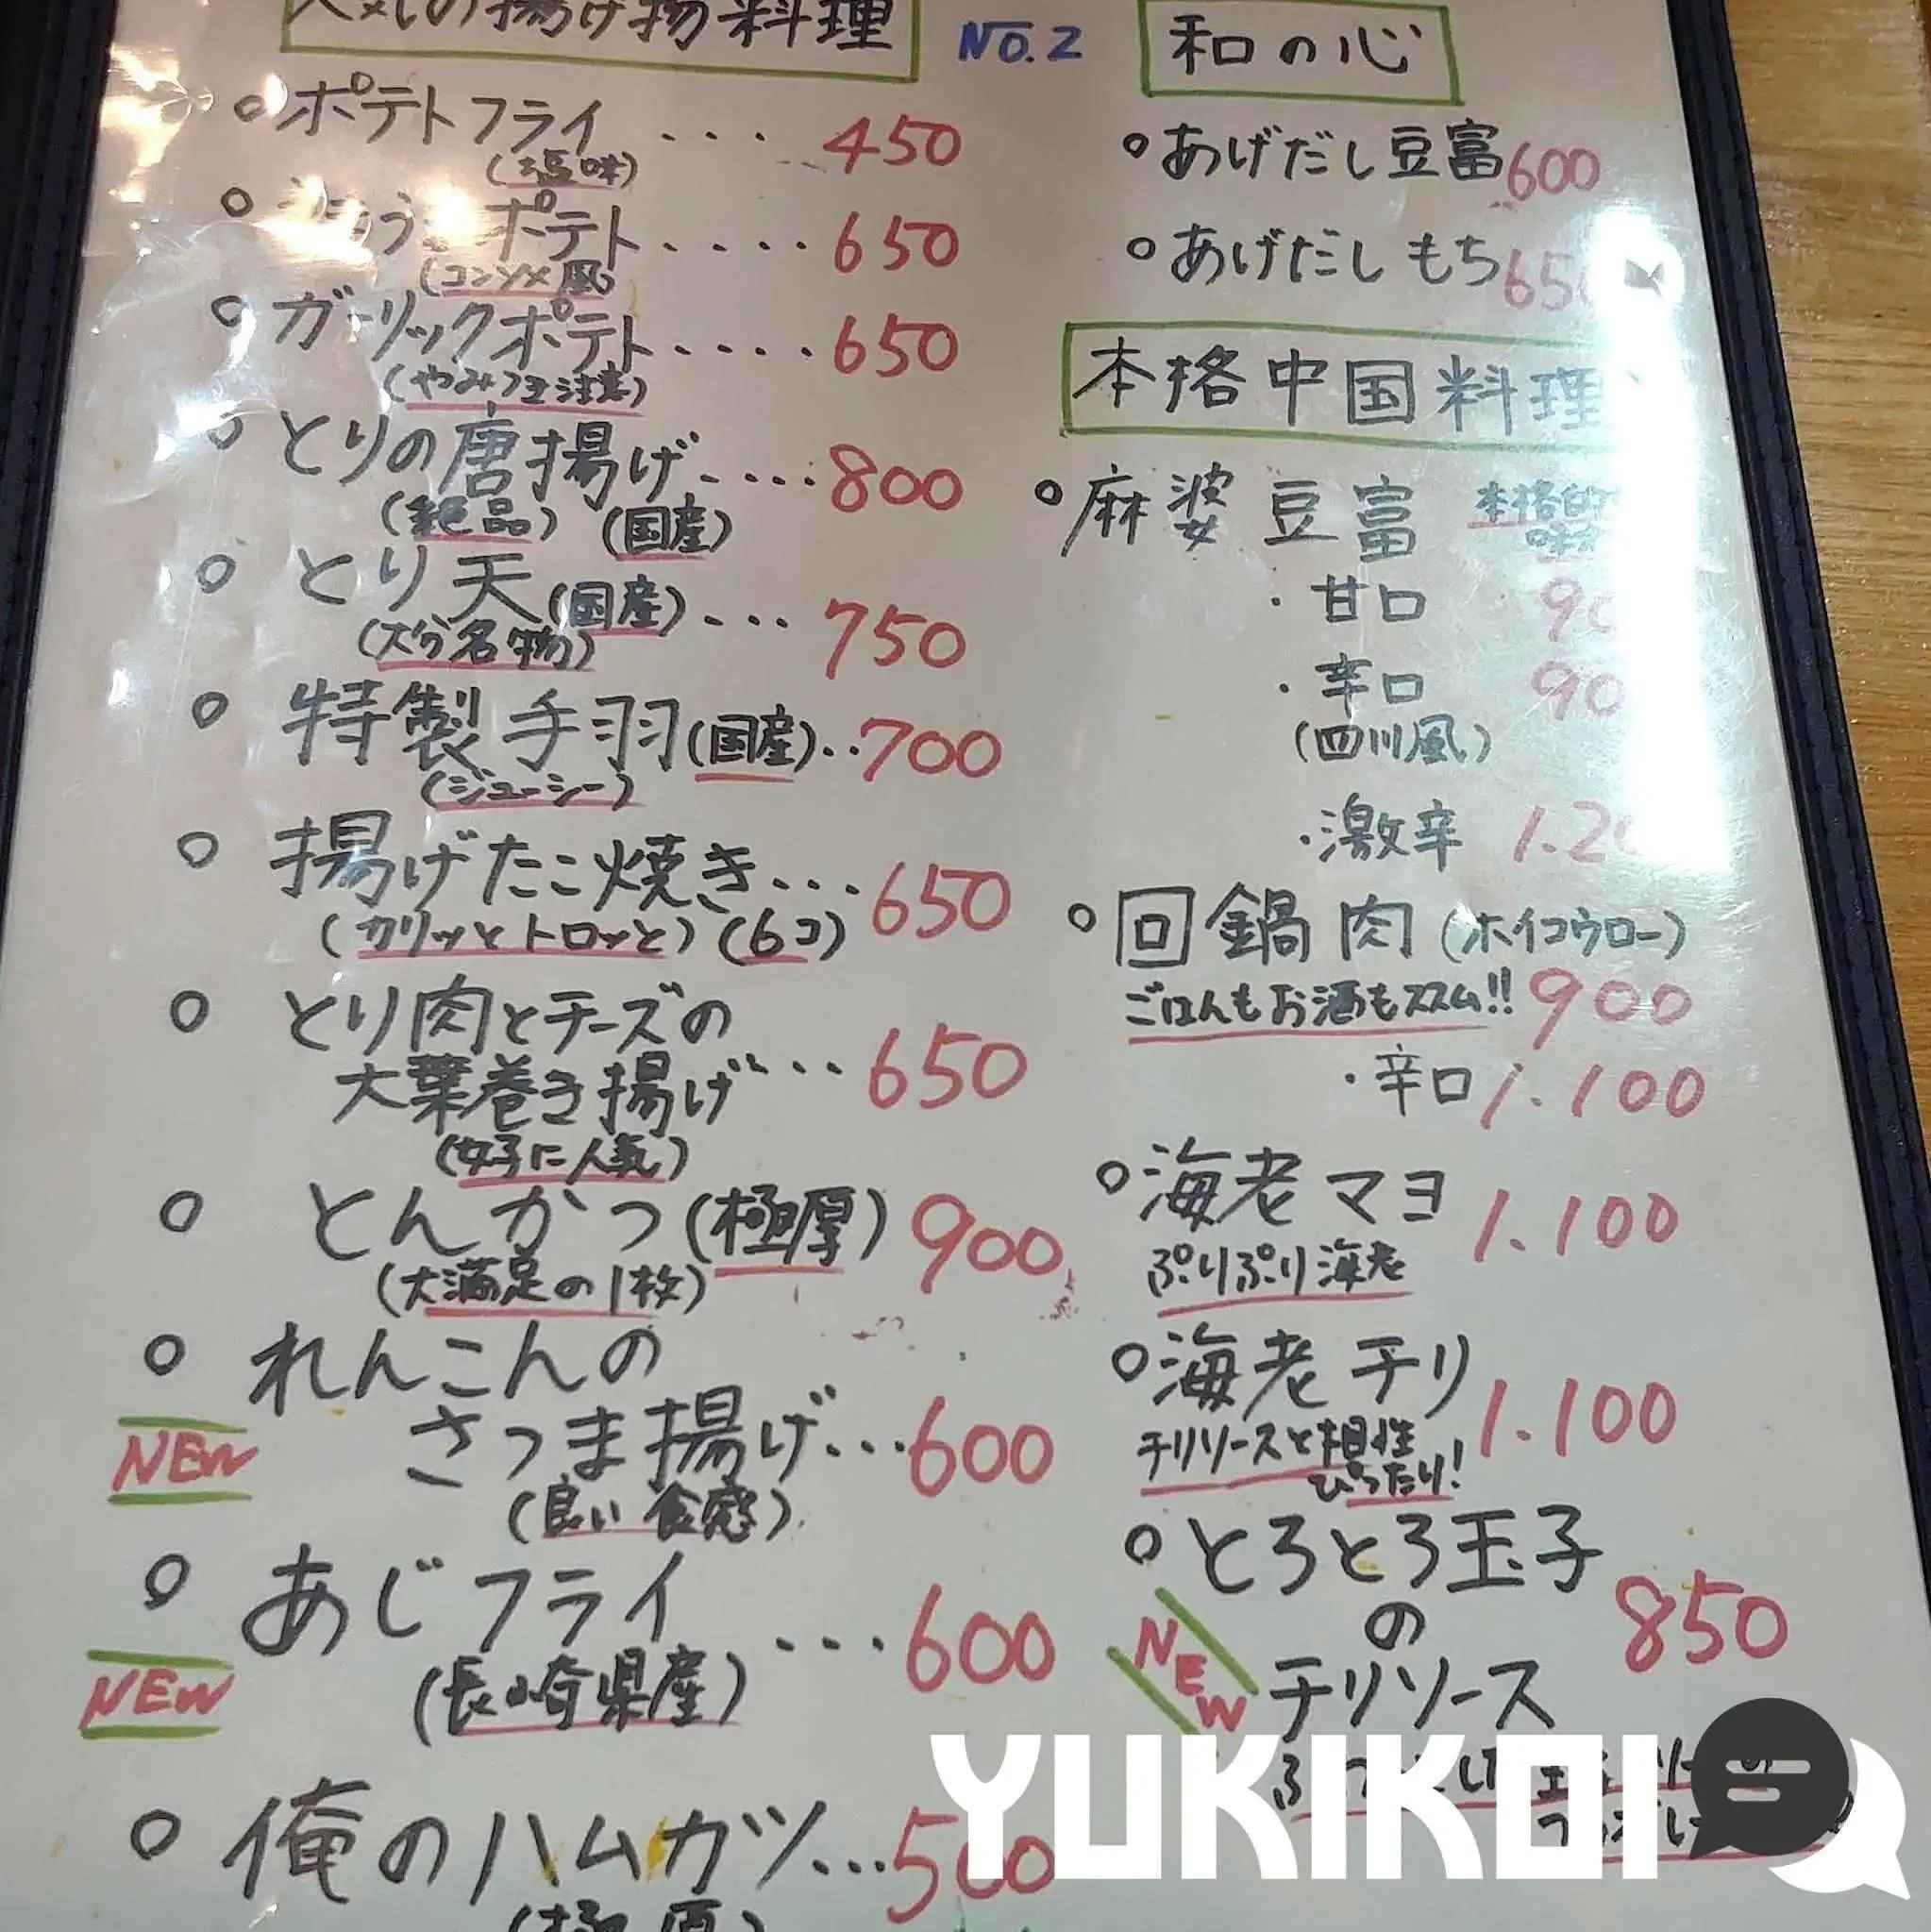 人気の揚げ物料理
NO.2
ポテトフライ ... 450
(塩味)
ポテト .... 650
(コンソメ風)
ガーリックポテト .... 650
(やみつき注意)
とりの唐揚げ .... 800
(絶品) (国産)
とり天 (国産) ... 750
(大分名物)
特製手羽 (国産) .. 700
(ジューシー)
揚げたこ焼き ... 650
(カリッとトロッと) (6コ)
とり肉とチーズの
大葉巻き揚げ ... 650
(女子に人気)
とんかつ (極厚) 900
(大満足の1枚)
れんこんの
NEW
さつま揚げ ... 600
(良い食感)
あじフライ ... 600
NEW
(長崎県産)
俺のハムカツ ... 500
和の心
あげだし豆富 600
あげだしもち 650
本格中国料理
麻婆豆富 本格的
・甘口
・辛口
(四川風)
・激辛
回鍋肉 (ホイコウロー)
ごはんもお酒もススム!! 900
・辛口 1.100
海老マヨ 1.100
ぷりぷり海老
海老チリ 1.100
チリソースと相性
ぴったり!
とろとろ玉子
の 850
NEW
チリソース
YUKIKOI